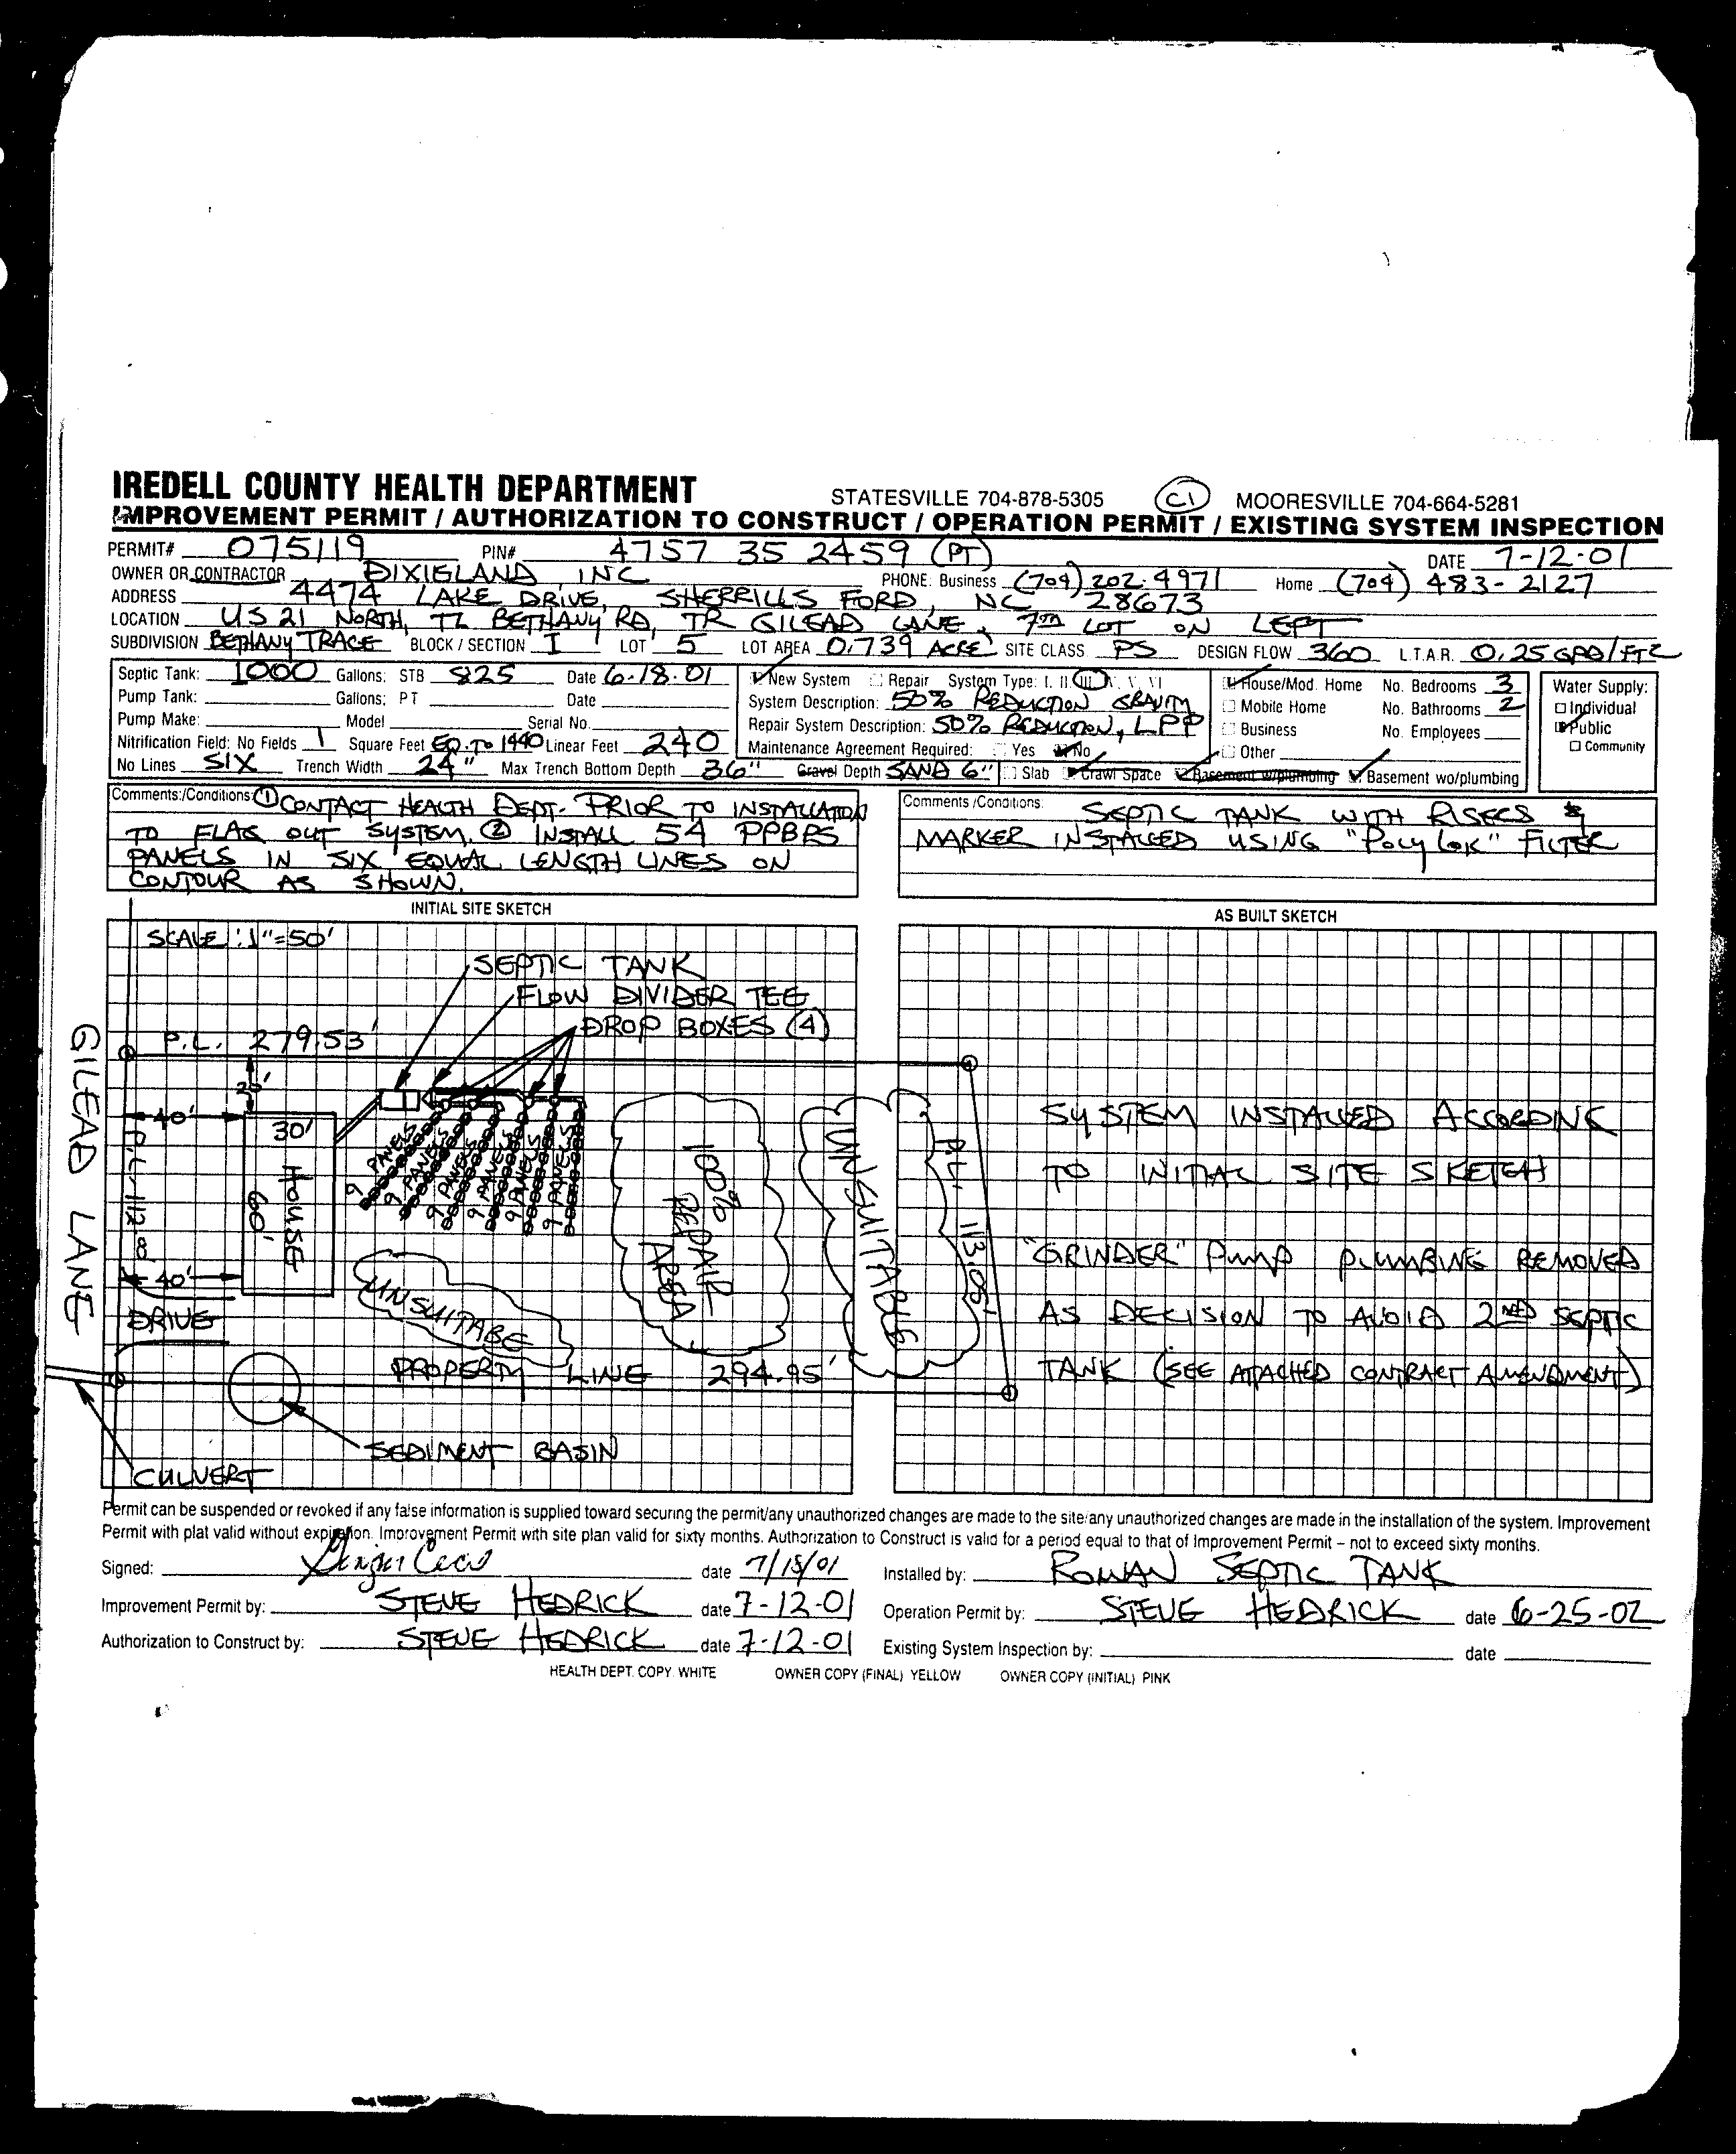 IREDELL COUNTY HEALTH DEPARTMENT STATESVILLE 704-878-5305 C1 MOORESVILLE 704-664-5281
IMPROVEMENT PERMIT / AUTHORIZATION TO CONSTRUCT / OPERATION PERMIT / EXISTING SYSTEM INSPECTION
PERMIT# 075119 PIN# 4757 35 2459 (PT) DATE 7-12-01
OWNER OR CONTRACTOR DIXIELAND, INC PHONE: Business (704) 202-4971 Home (704) 483-2127
ADDRESS 4474 LAKE DRIVE, SHERRILLS FORD, NC 28673
LOCATION US 21 NORTH, TL BETHANY RD, TR GILEAD LANE, 7TH LOT ON LEFT
SUBDIVISION BETHANY TRACE BLOCK / SECTION I LOT 5 LOT AREA 0.739 ACRE SITE CLASS PS DESIGN FLOW 360 L.T.A.R. 0.25 GPD/FT2
Septic Tank: 1000 Gallons: STB 825 Date 6-18-01
Pump Tank: Gallons: PT Date
Pump Make: Model Serial No.
Nitrification Field: No Fields 1 Square Feet EQ. TO 1440 Linear Feet 240
No Lines SIX Trench Width 24" Max Trench Bottom Depth 36" Gravel Depth SAND 6"
New System Repair System Type: I. II. III IV. V. VI
System Description: 50% REDUCTION GRAVITY
Repair System Description: 50% REDUCTION, LPP
Maintenance Agreement Required: Yes No
House/Mod. Home No. Bedrooms 3
Mobile Home No. Bathrooms 2
Business No. Employees
Other
Slab Crawl Space Basement w/plumbing Basement wo/plumbing
Water Supply:
Individual
Public
Community
Comments:/Conditions: ① CONTACT HEALTH DEPT. PRIOR TO INSTALLATION
TO FLAG OUT SYSTEM. ② INSTALL 54 PPBPS
PANELS IN SIX EQUAL LENGTH LINES ON
CONTOUR AS SHOWN.
Comments /Conditions: SEPTIC TANK WITH RISERS &
MARKER INSTALLED USING "POLY LOK" FILTER
INITIAL SITE SKETCH
SCALE: 1"=50'
SEPTIC TANK
FLOW DIVIDER TEE
DROP BOXES (4)
P.L. 279.53'
GILEAD LANE
40'
30'
HOUSE
60'
P.L. 112.8
40'
DRIVE
9 PANELS
9 PANELS
9 PANELS
9 PANELS
9 PANELS
9 PANELS
100%
REPAIR
AREA
UNSUITABLE
P.L. 113.05'
UNSUITABE
PROPERTY LINE 294.95'
SEDIMENT BASIN
CULVERT
AS BUILT SKETCH
SYSTEM INSTALLED ACCORDING
TO INITIAL SITE SKETCH
"GRINDER" PUMP PLUMBING REMOVED
AS DECISION TO AVOID 2ND SEPTIC
TANK (SEE ATTACHED CONTRACT AMENDMENT)
Permit can be suspended or revoked if any false information is supplied toward securing the permit/any unauthorized changes are made to the site/any unauthorized changes are made in the installation of the system. Improvement
Permit with plat valid without expiration. Improvement Permit with site plan valid for sixty months. Authorization to Construct is valid for a period equal to that of Improvement Permit – not to exceed sixty months.
Signed: date 7/18/01 Installed by: ROWAN SEPTIC TANK
Improvement Permit by: STEVE HEDRICK date 7-12-01 Operation Permit by: STEVE HEDRICK date 6-25-02
Authorization to Construct by: STEVE HEDRICK date 7-12-01 Existing System Inspection by: date
HEALTH DEPT. COPY WHITE OWNER COPY (FINAL) YELLOW OWNER COPY (INITIAL) PINK